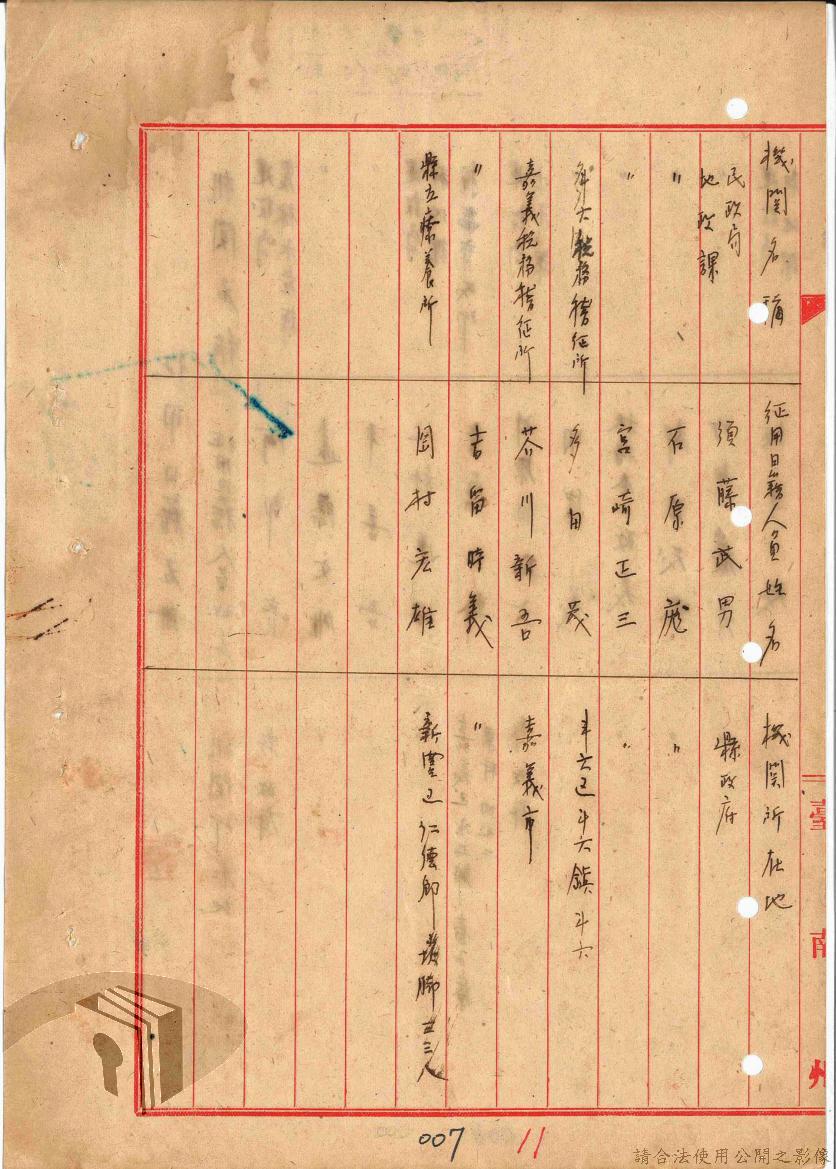 機関名稱 征用日籍人員姓名 機関所在地
民政局
地政課 須藤武男 縣政府
〃 石原 〃
〃 宮崎正三 〃
斗六稅務稽征所 多田茂 斗六区斗六鎮斗六
嘉義稅務稽征所 芥川新吾 嘉義市
〃 吉留時義 〃
縣立療養所 岡村宏雄 新豐区仁德鄉
臺南州
007 11
請合法使用公開之影像